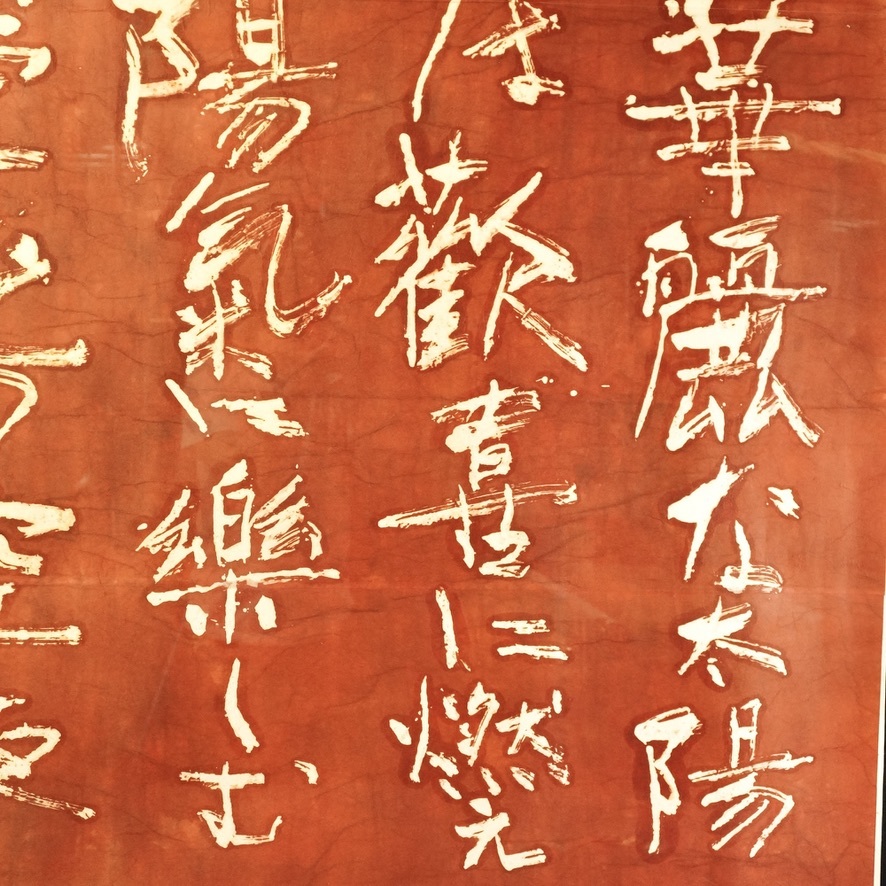 華麗な太陽
は歓喜に燃え
陽氣に樂しむ